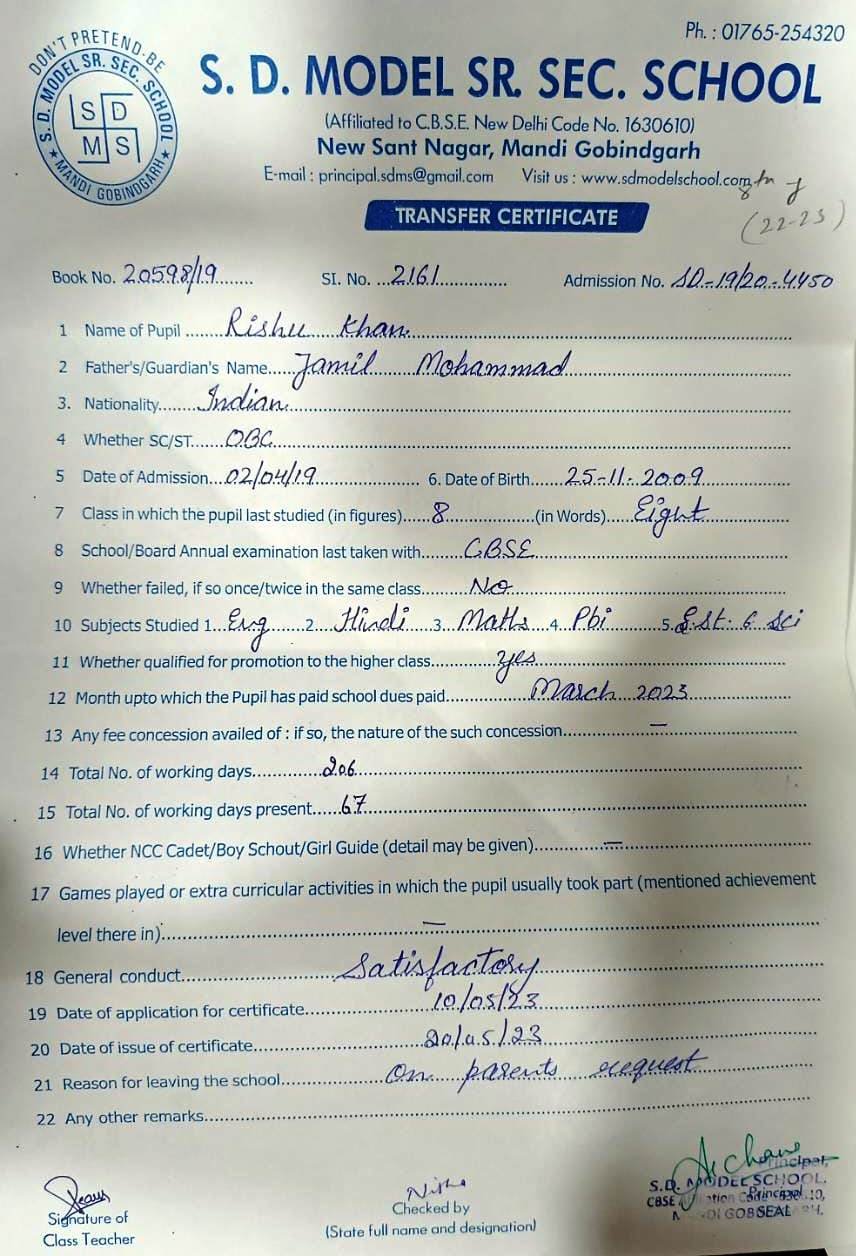 Ph. : 01765-254320
DON'T PRETEND-BE
S. D. MODEL SR. SEC. SCHOOL
★ MANDI GOBINDGARH ★
S D
M S
S. D. MODEL SR. SEC. SCHOOL
(Affiliated to C.B.S.E. New Delhi Code No. 1630610)
New Sant Nagar, Mandi Gobindgarh
E-mail : principal.sdms@gmail.com Visit us : www.sdmodelschool.com
(22-23)
TRANSFER CERTIFICATE
Book No. 20598/19 SI. No. 2161 Admission No. SD-19/20-4450
1 Name of Pupil Rishu Khan
2 Father's/Guardian's Name Jamil Mohammad
3. Nationality Indian
4 Whether SC/ST OBC
5 Date of Admission 02/04/19 6. Date of Birth 25-11-2009
7 Class in which the pupil last studied (in figures) 8 (in Words) Eight
8 School/Board Annual examination last taken with CBSE
9 Whether failed, if so once/twice in the same class No
10 Subjects Studied 1 Eng 2 Hindi 3. Maths 4. Pbi 5. S.St. 6 Sci
11 Whether qualified for promotion to the higher class yes
12 Month upto which the Pupil has paid school dues paid March 2023
13 Any fee concession availed of : if so, the nature of the such concession —
14 Total No. of working days 206
15 Total No. of working days present 67
16 Whether NCC Cadet/Boy Schout/Girl Guide (detail may be given) —
17 Games played or extra curricular activities in which the pupil usually took part (mentioned achievement
level there in) —
18 General conduct Satisfactory
19 Date of application for certificate 10/05/23
20 Date of issue of certificate 20/05/23
21 Reason for leaving the school On parents request
22 Any other remarks
Nisha
Signature of
Class Teacher
Checked by
(State full name and designation)
Principal,
S.D. MODEL SCHOOL,
CBSE
Principal
SEAL